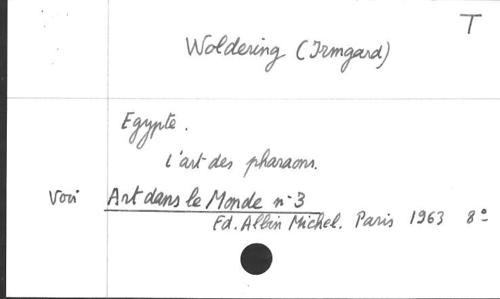 T
Woldering (Irmgard)
Egypte.
L'art des pharaons.
Voir Art dans le Monde n° 3
Ed. Albin Michel. Paris 1963 8°